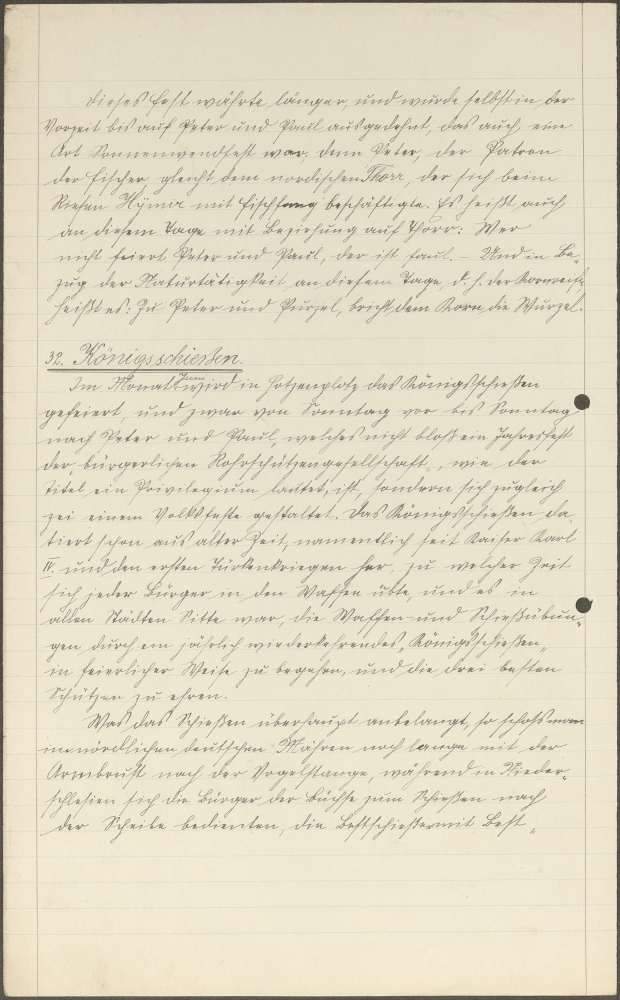 Dieses Fest währte länger, und wurde selbst in der
Vorzeit bis auf Peter und Paul ausgedehnt, das auch eine
Art Sonnenwendfest war. Denn Peter, der Patron
der Fischer, gleicht dem nordischen Thorr, der sich beim
Riesen Hýmir mit Fischfang beschäftigte. Es heißt auch
an diesem Tage mit Beziehung auf Thórr: Wer
nicht feiert Peter und Paul, der ist faul. – Und in Be„
zug der Naturtätigkeit an diesem Tage, d. h. der Kornreife,
heißt es: Zu Peter und Purzel, bricht dem Korn die Wurzel.
32. Königsschießen.
Im Monat Juni wird in Hotzenplotz das Königsschießen
gefeiert, und zwar von Sonntag vor bis Sonntag
nach Peter und Paul, welches nicht bloß ein Jahresfest
der bürgerlichen Rohrschützengesellschaft, wie der
Titel ein Privilegium lautet, ist, sondern sich zugleich
zei einem Volksfeste gestaltet. Das Königsschießen da„
tiert schon aus alter Zeit, namentlich seit Kaiser Karl
IV. und den ersten Türkenkriegen her, zu welcher Zeit
sich jeder Bürger in den Waffen übte, und es in
allen Städten Sitte war, die Waffen- und Schießübun„
gen durch ein jährlich wiederkehrendes „Königsschießen„
in feierlicher Weise zu begehen, und die drei besten
Schützen zu ehren.
Was das Schießen überhaupt anbelangt, so schoss man
im nördlichen deutschen Mähren noch lange mit der
Armbrust nach der Vogelstange, während in Nieder„
schlesien sich die Bürger der Büchse zum Schießen nach
der Scheibe bedienten, die Bestschießer mit Best„